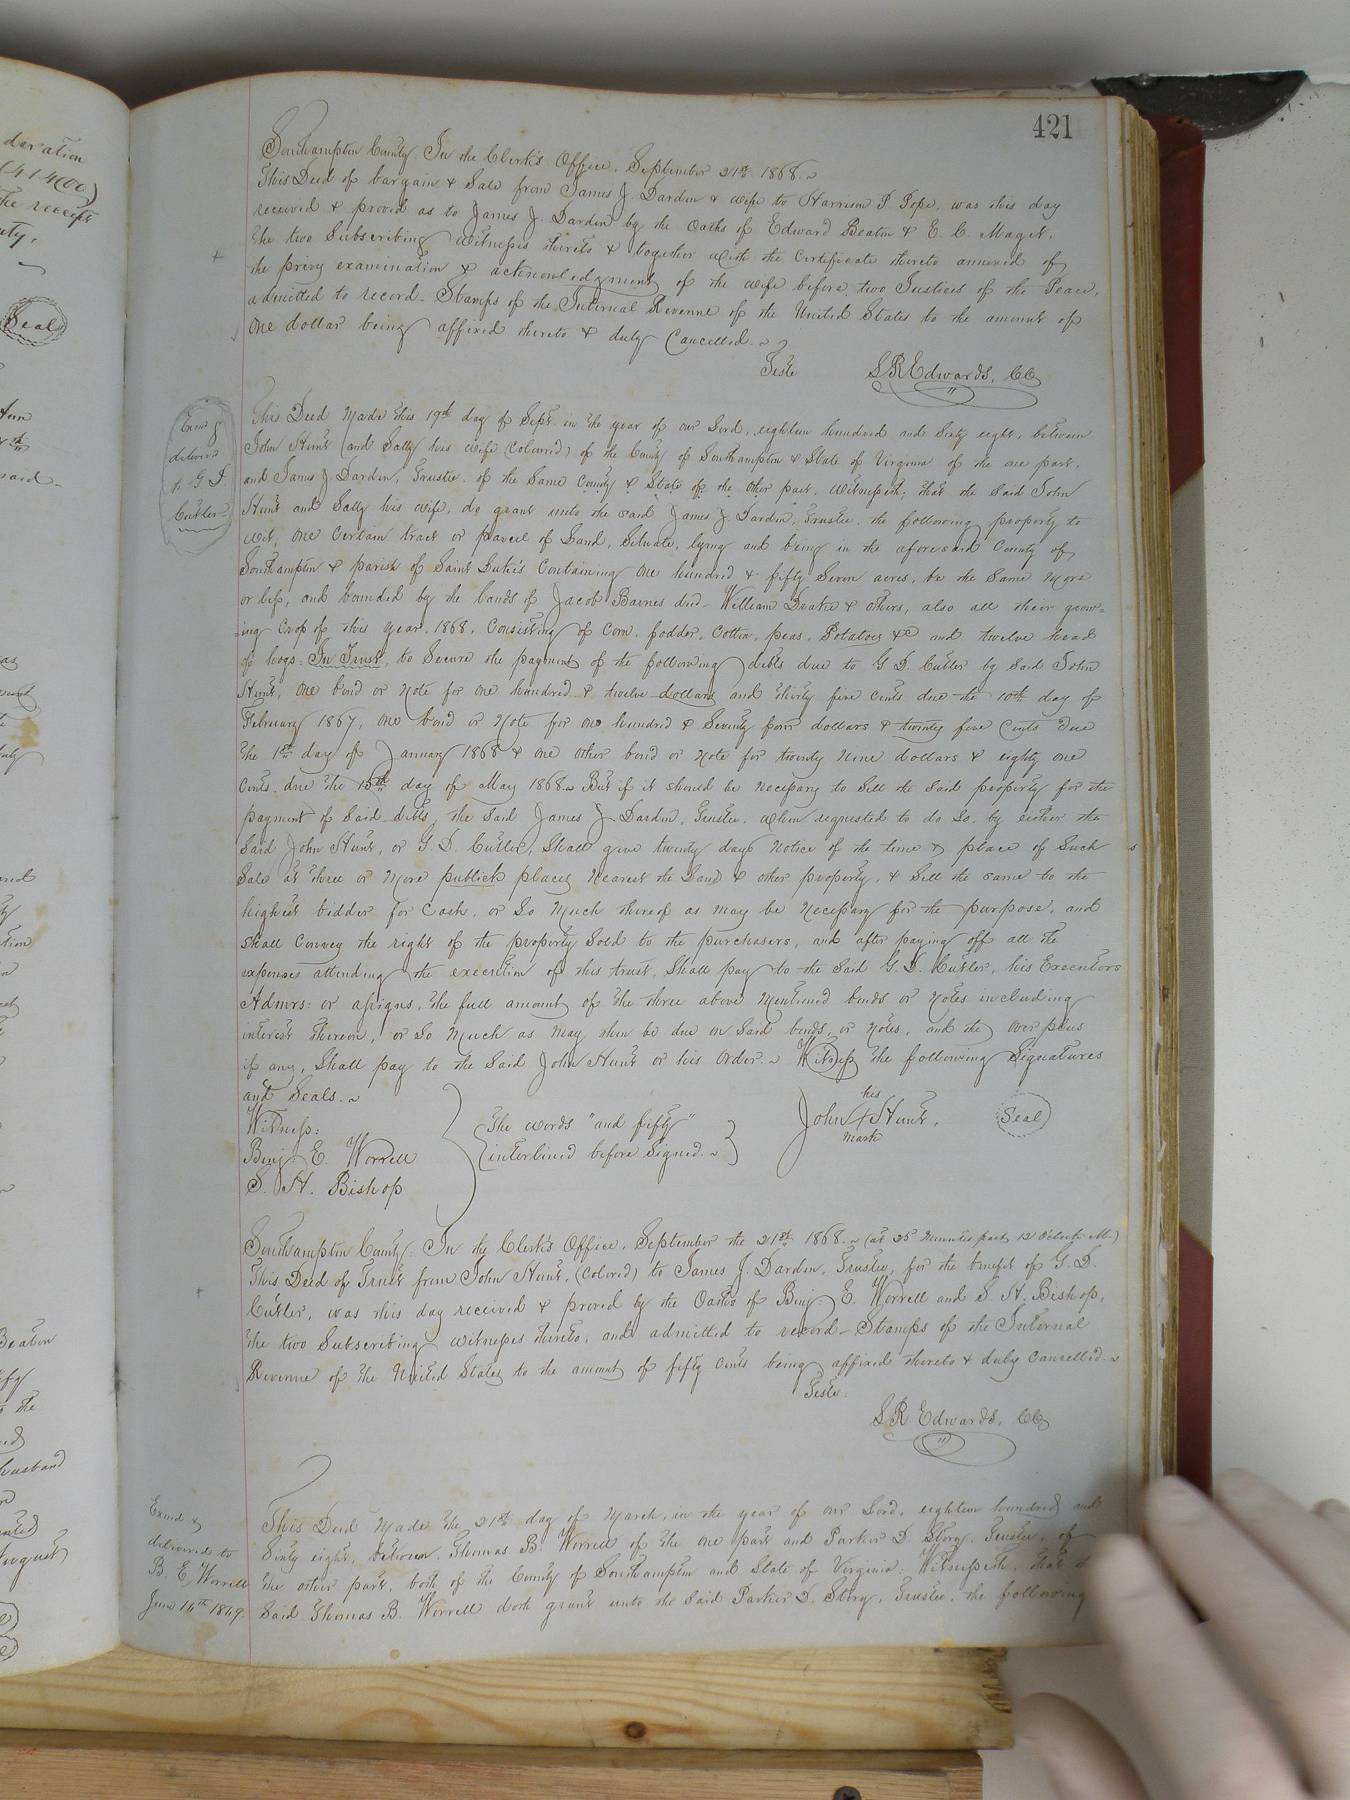 421
Southampton County. In the Clerk's Office, September 21st 1868.~
This Deed of bargain & Sale from James J. Darden & wife to Harrison P Pope, was this day
received & proved as to James J. Darden by the Oaths of Edward Beaton & E. C. Maget,
the two Subscribing witnesses thereto & together with the Certificate thereto annexed of
the privy examination & acknowledgment of the wife before two Justices of the Peace,
admitted to record - Stamps of the Internal Revenue of the United States to the amount of
One dollar being affixed thereto & duly Cancelled.~
Teste
L R Edwards, CC
Exmd &
delivered
to G D
Cutler
This Deed Made this 19th day of Sept. in the year of our Lord, eighteen hundred and Sixty eight, between
John Hunt (and Sally his wife (Coloured) of the County of Southampton & State of Virginia of the one part,
and James J. Darden, Trustee, of the Same County & State of the other part, Witnesseth; that the Said John
Hunt and Sally his wife, do grant unto the said James J Darden, Trustee, the following property to
wit, One Certain tract or parcel of Land, Situate, lying and being in the aforesaid County of
Southampton & parish of Saint Luke's Containing One hundred & fifty Seven acres, be the Same More
or less, and bounded by the lands of Jacob Barnes decd- William Drake & others, also all their grow=
=ing Crop of this year, 1868, Consisting of Corn, fodder, Cotton, peas, Potatoes &c and twelve head
of hogs: In Trust, to Secure the payment of the following debts due to G D. Cutler by Said John
Hunt, One bond or Note for One hundred & twelve dollars and thirty five cents due the 10th day of
February 1867, one bond or Note for one hundred & Seventy four dollars & twenty five Cents due
the 1st day of January 1868 & one other bond or Note for twenty Nine dollars & eighty one
Cents, due the 15th day of May 1868.~ But if it should be Necessary to Sell the Said property for the
payment of Said debts, the Said James J Darden, Trustee, when requested to do So, by either the
Said John Hunt, or G. D. Cutler, Shall give twenty days Notice of the time & place of Such
Sale at three or More publick places Nearest the Land & other property, & Sell the same to the
highest bidder for Cash, or So Much thereof as may be Necessary for the purpose, and
shall Convey the right of the property Sold to the purchasers, and after paying off all the
expenses attending the execution of this trust, Shall pay to the Said G. D. Cutler, his Executors
Admrs: or assigns, the full amount of the three above Mentioned bonds or Notes including
interest thereon, or So Much as May then be due on Said bonds, or Notes, and the over plus
if any, Shall pay to the Said John Hunt or his Order.~ Witness the following Signatures
and Seals.~
Witness:
Benj. E. Worrell
S. H. Bishop
The words "and fifty"
interlined before Signed.~
his
John + Hunt, Seal
Mark
Southampton County: In the Clerk's Office, September the 21st 1868.~ (at 25 Minutes past 12 Oclock M.)
This Deed of Trust from John Hunt, (Colored) to James J. Darden, Trustee, for the benefit of G. D.
Cutler, was this day received & proved by the Oaths of Benj. E. Worrell and S. H. Bishop,
the two Subscribing witnesses thereto, and admitted to record - Stamps of the Internal
Revenue of the United States to the amount of fifty cents being affixed thereto & duly Cancelled.~
Teste:
L R Edwards, CC
Exmd &
delivered to
B. E. Worrell
June 14th 1869.
This Deed Made the 21st day of March, in the year of our Lord, eighteen hundred and
Sixty eight, between Thomas B. Worrell of the one part and Parker D. Story, Trustee, of
the other part, both of the County of Southampton and State of Virginia, Witnesseth, that the
Said Thomas B. Worrell doth grant unto the Said Parker D. Story, Trustee, the following